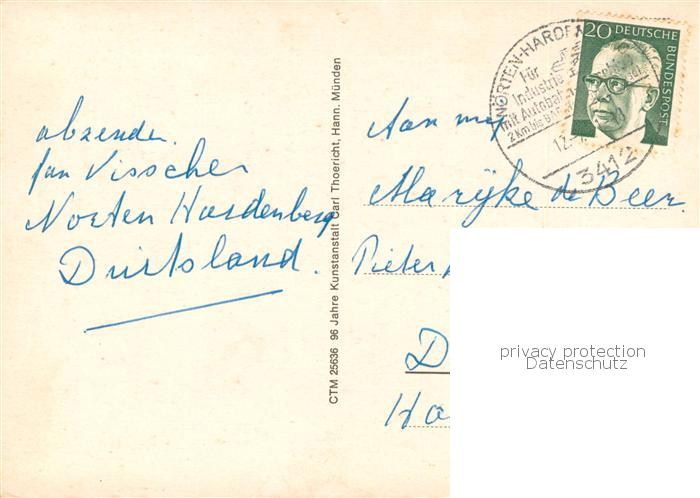 abzender.
Jan Visscher
Norten Hardenberg
Duitsland.
CTM 25636 96 Jahre Kunstanstalt Carl Thoericht, Hann. Münden
NÖRTEN-HARDE
Für
Industrie
mit Autobah
2 km bis B
12.
3412
20 DEUTSCHE BUNDESPOST
Aan mej
Marijke de Beer.
Pieter
D
Ho
privacy protection
Datenschutz